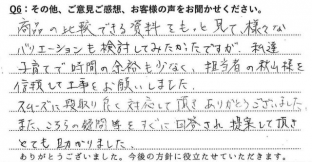 Q6：その他、ご意見ご感想、お客様の声をお聞かせください。
商品の比較できる資料をもっと見て、様々な
バリエーションも検討してみたかたですが、私達
子育てで時間の余裕も少なく、担当者の秋山様を
信頼して工事をお願いしました。
スムーズに段取り良く対応して頂きありがとうございました。
また、こちらの疑問等をすぐに回答され提案して頂き
とても助かりました。
ありがとうございました。今後の方針に役立たせていただきます。